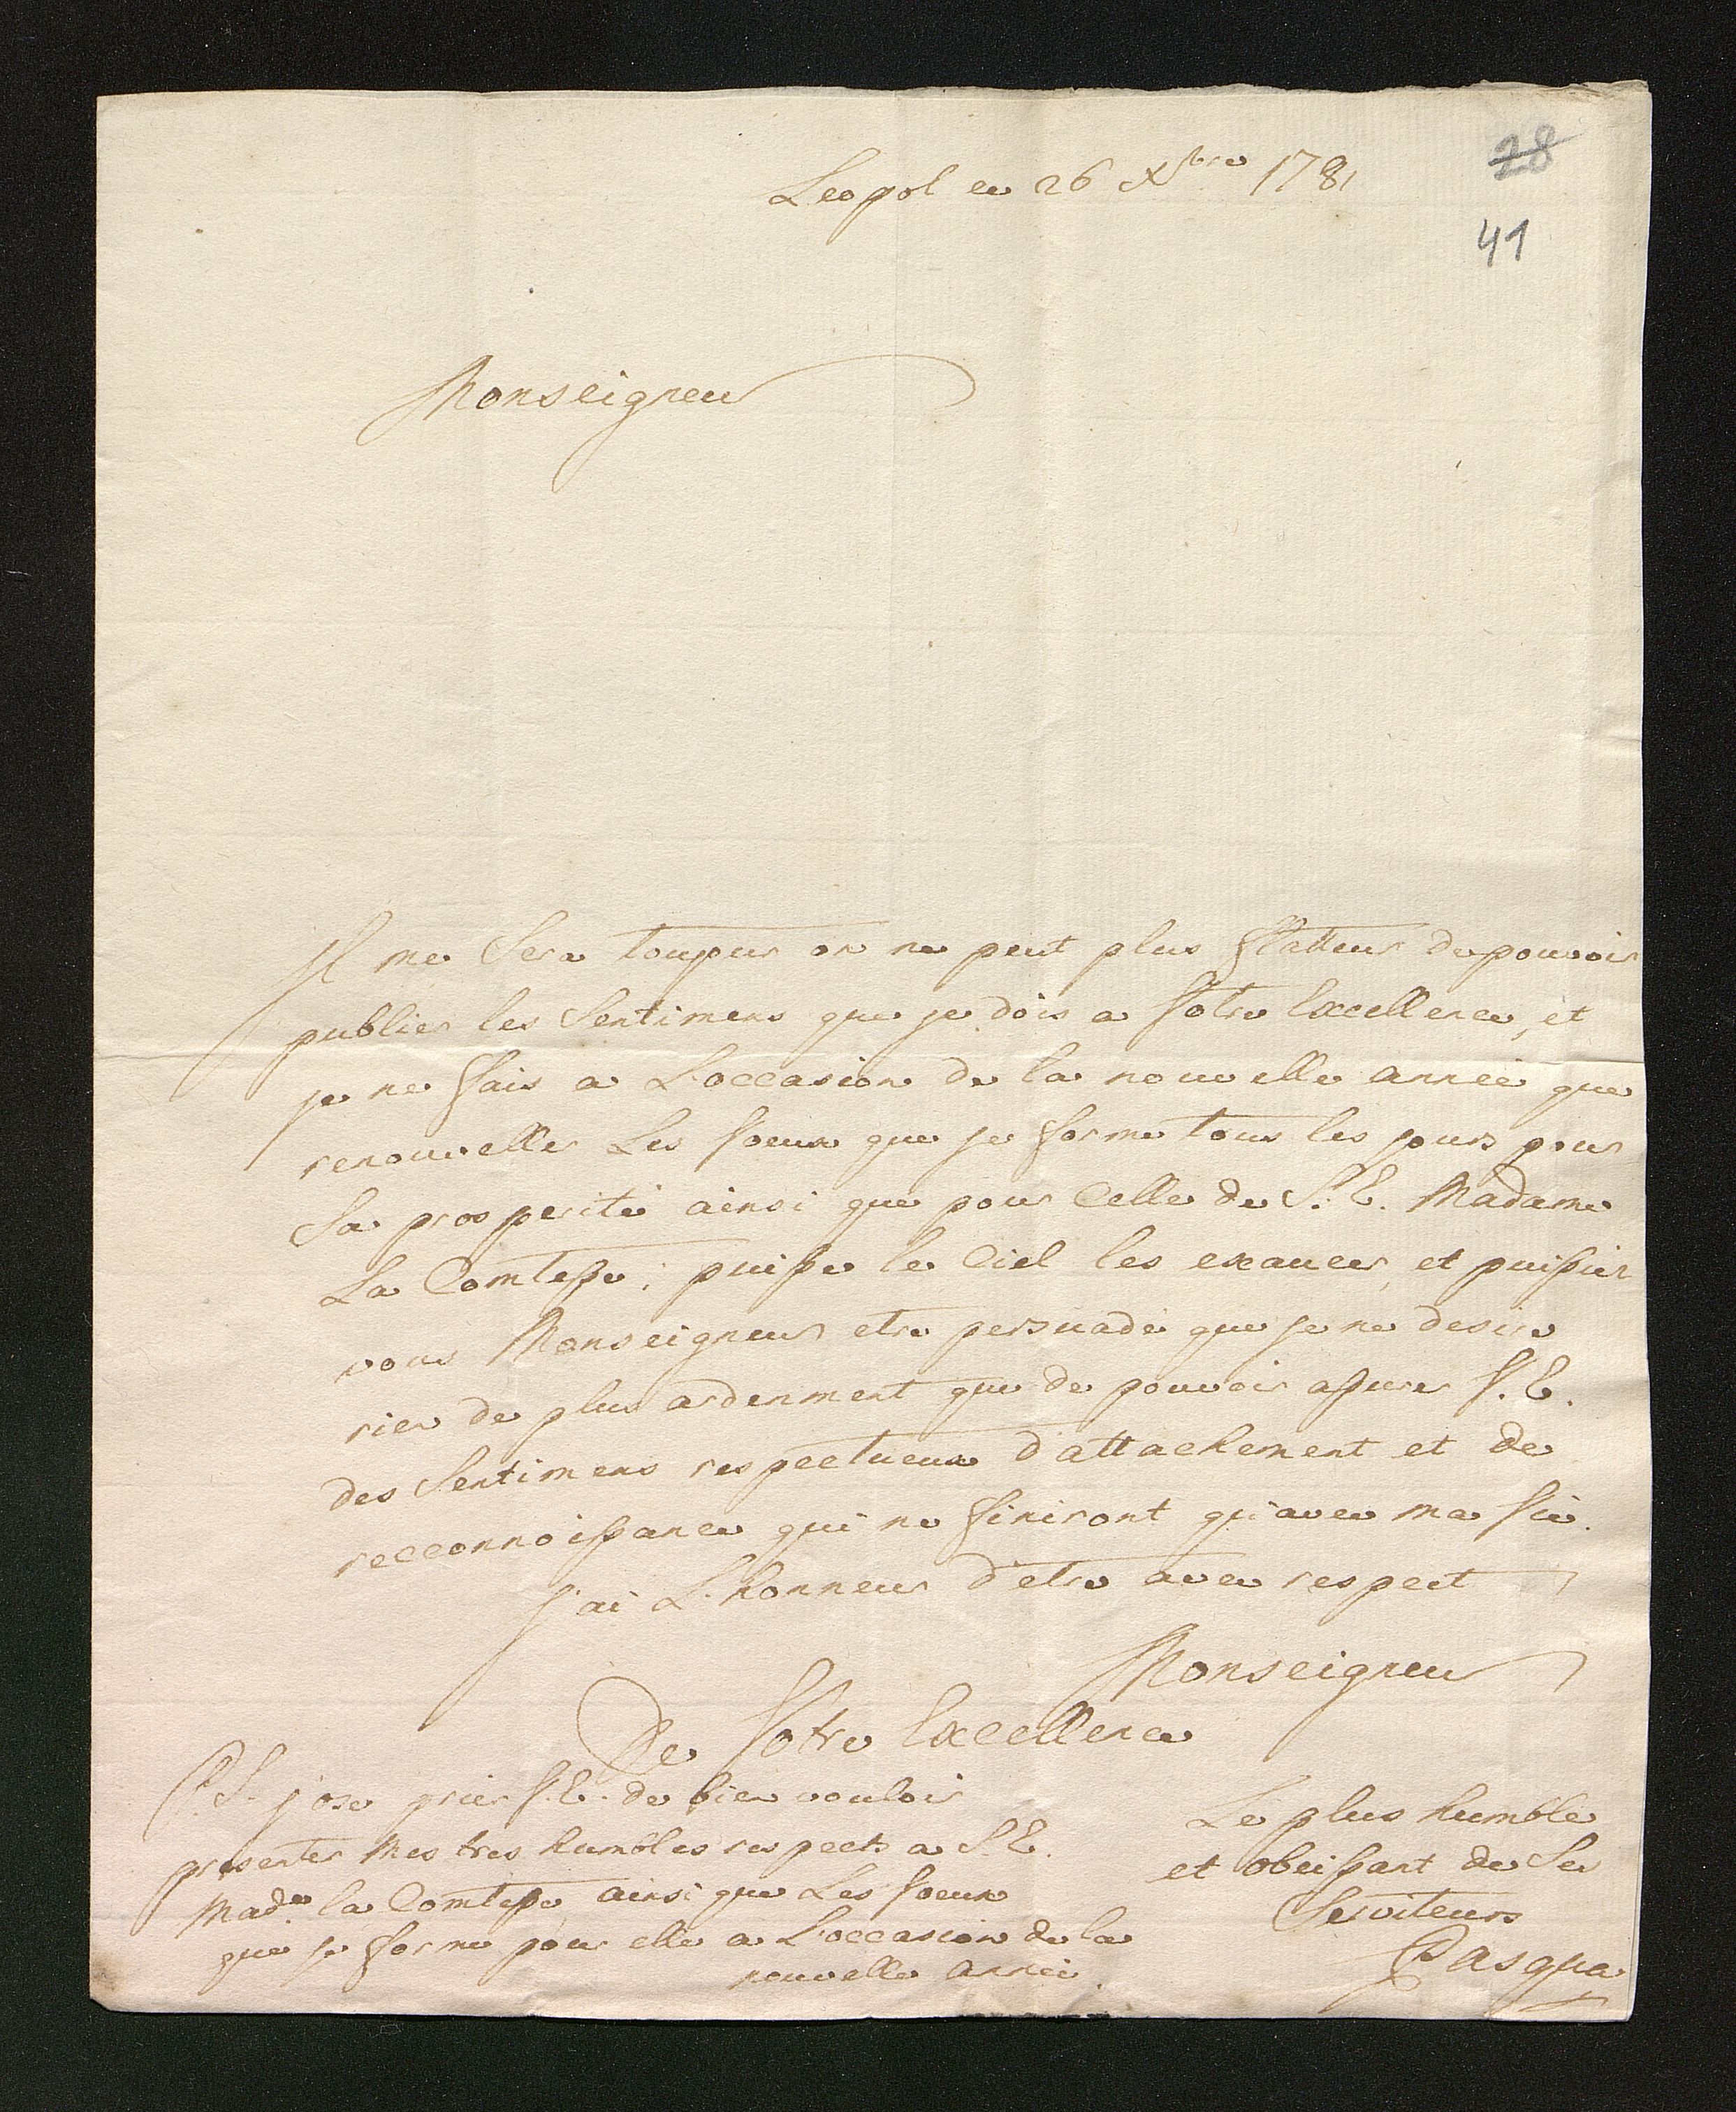 Leopol ce 26 Xbre 1781
28
41
Monseigneur
Il me Sera toujour on ne peut plus flatteur de pouvoir
publier les Sentimens que je dois a Votre Excellence, et
je ne fais a L'occasion de la nouvelle année que
renouveller Les Voeux que je forme tous les jours pour
Sa prosperité ainsi que pour Celle de S. E. Madame
La Comtesse; puisse le Ciel les exaucer, et puissiez
vous Monseigneur etre persuadé que je ne desire
rien de plus ardenment que de pouvoir assurer V. E.
des Sentimens respectueux d'attachement et de
recconnoissance qui ne finiront qu'avec ma Vie.
J'ai L'honneur d'etre avec respect
Monseigneur
De Votre Excellence
P.S. j'ose prier V. E. de bien vouloir
presenter Mes tres humbles respects a S. E.
Made la Comtesse, ainsi que Les Voeux
que je forme pour elle a L'occasion de la
nouvelle Année.
Le plus humble
et obeissant de Ses
Serviteurs
Pasqua